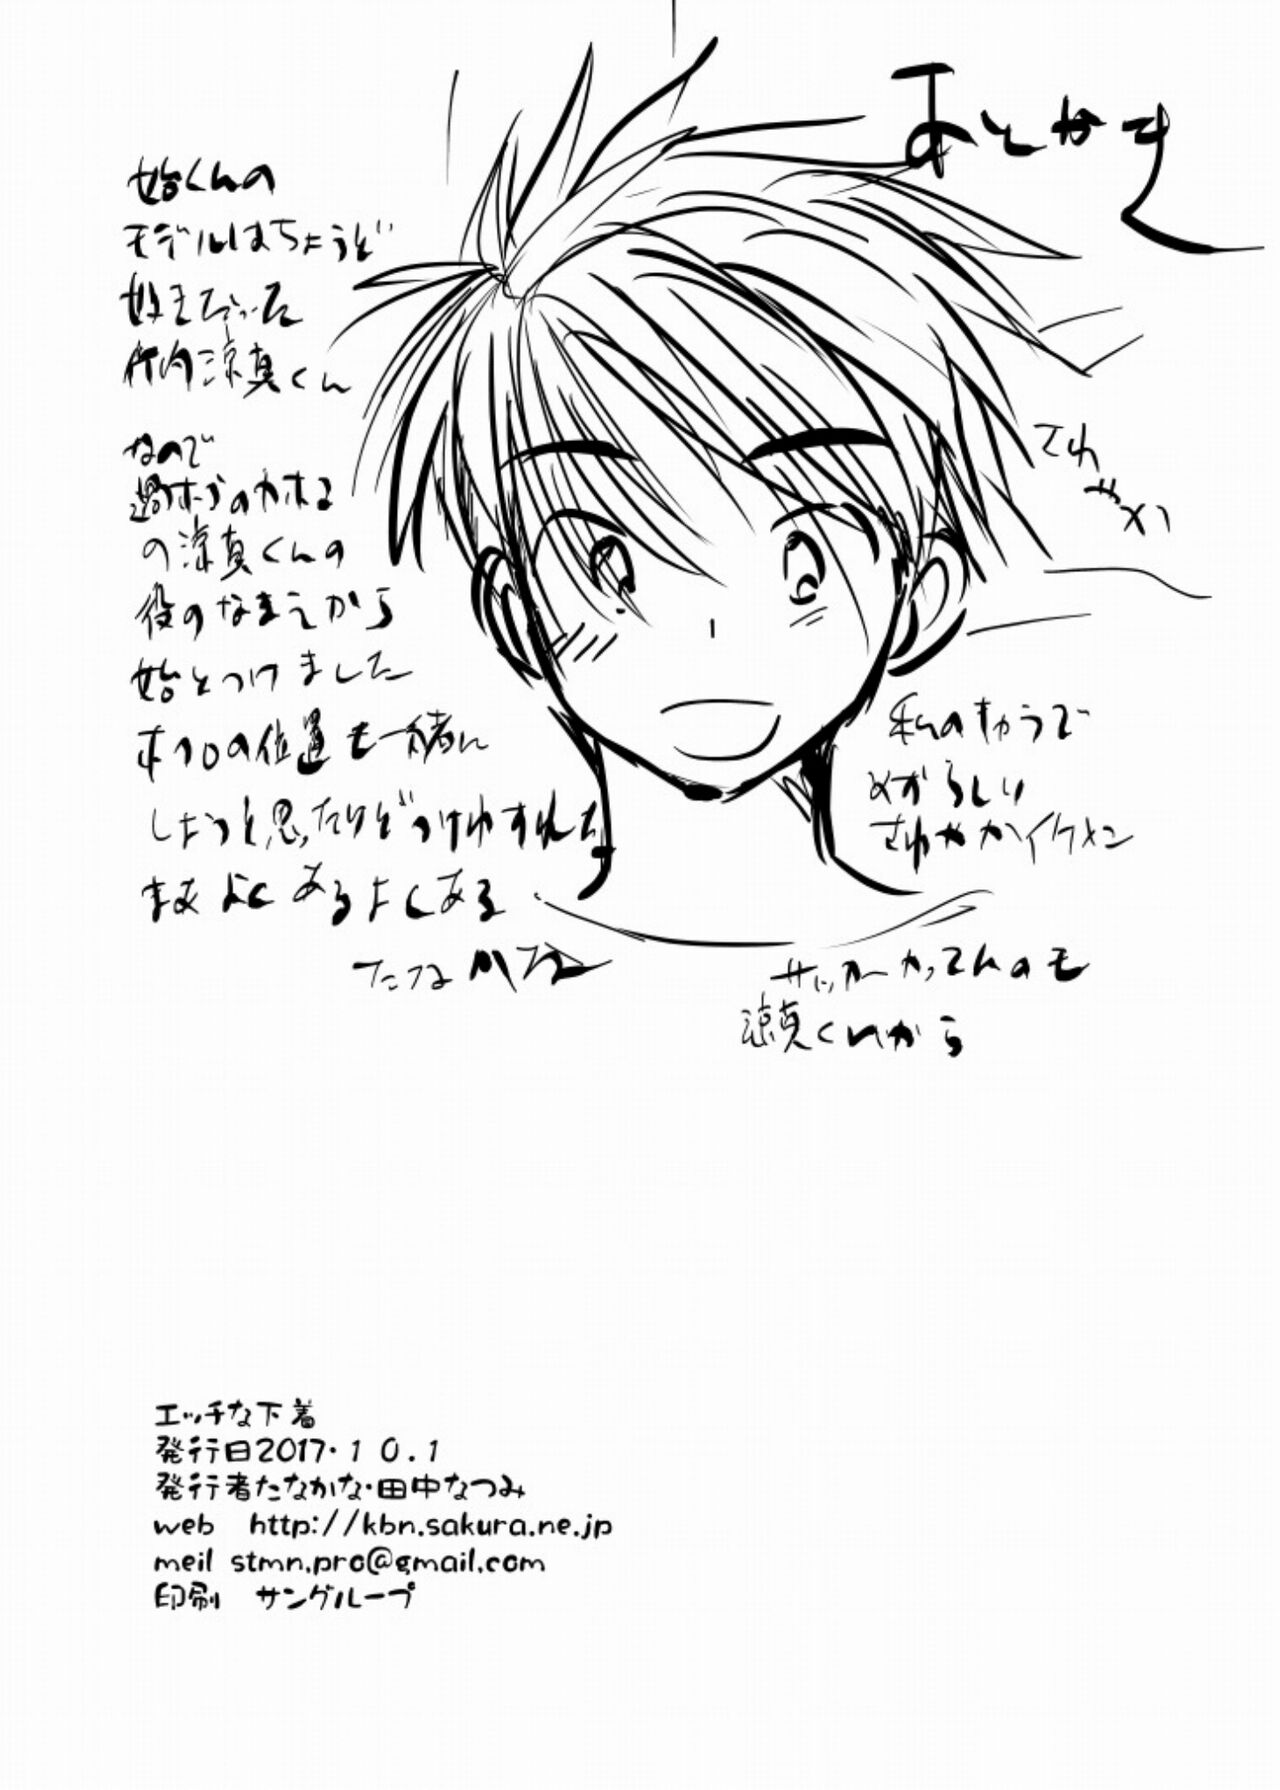 あとがき
始くんの
モデルはちょうど
好きだった
竹内涼真くん
なので
過保護のカホコ
の涼真くんの
役のなまえから
始とつけました
ホクロの位置も一緒に
しようと思ったけどつけわすれた
まあよくあるよくある
たなかな
さわやか
私のキャラで
めずらしい
さわやかイケメン
サッカーやってんのも
涼真くんから
エッチな下着
発行日2017・10.1
発行者たなかな・田中なつみ
web http://kbn.sakura.ne.jp
meil stmn.pro@gmail.com
印刷 サングループ